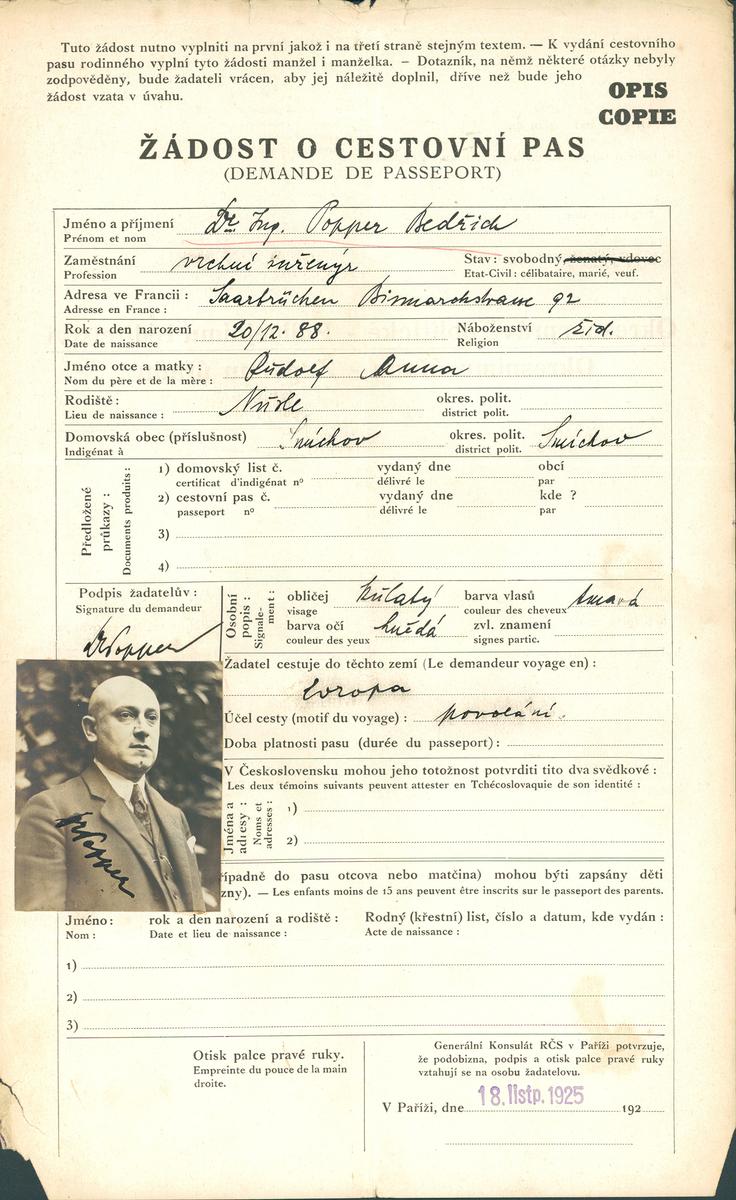 Tuto žádost nutno vyplniti na první jakož i na třetí straně stejným textem. — K vydání cestovního
pasu rodinného vyplní tyto žádosti manžel i manželka. — Dotazník, na němž některé otázky nebyly
zodpověděny, bude žadateli vrácen, aby jej náležitě doplnil, dříve než bude jeho
žádost vzata v úvahu.
OPIS
COPIE
ŽÁDOST O CESTOVNÍ PAS
(DEMANDE DE PASSEPORT)
Jméno a příjmení Dr. Ing. Popper Bedřich
Prénom et nom
Zaměstnání vrchní inženýr Stav: svobodný, ženatý, vdovec
Profession Etat-Civil: célibataire, marié, veuf.
Adresa ve Francii: Saarbrücken Bismarckstrasse 92
Adresse en France:
Rok a den narození 20/12. 88. Náboženství žid.
Date de naissance Religion
Jméno otce a matky: Rudolf Anna
Nom du père et de la mère:
Rodiště: Nusle okres. polit.
Lieu de naissance: district polit.
Domovská obec (příslušnost) Smíchov okres. polit. Smíchov
Indigénat à district polit.
Předložené průkazy:
Documents produits:
1) domovský list č. vydaný dne obcí
certificat d'indigénat nº délivré le par
2) cestovní pas č. vydaný dne kde ?
passeport nº délivré le par
3)
4)
Podpis žadatelův:
Signature du demandeur
DrPopper
Osobní popis:
Signalement:
obličej kulatý barva vlasů tmavá
visage couleur des cheveux
barva očí hnědá zvl. znamení
couleur des yeux signes partic.
Žadatel cestuje do těchto zemí (Le demandeur voyage en):
Evropa
Účel cesty (motif du voyage): povolání.
Doba platnosti pasu (durée du passeport):
V Československu mohou jeho totožnost potvrditi tito dva svědkové:
Les deux témoins suivants peuvent attester en Tchécoslovaquie de son identité:
Jména a adresy:
Noms et adresses:
1)
2)
DrPopper
ípadně do pasu otcova nebo matčina) mohou býti zapsány děti
zny). — Les enfants moins de 15 ans peuvent être inscrits sur le passeport des parents.
Jméno: rok a den narození a rodiště: Rodný (křestní) list, číslo a datum, kde vydán:
Nom: Date et lieu de naissance: Acte de naissance:
1)
2)
3)
Otisk palce pravé ruky.
Empreinte du pouce de la main
droite.
Generální Konsulát RČS v Paříži potvrzuje,
že podobizna, podpis a otisk palce pravé ruky
vztahují se na osobu žadatelovu.
V Paříži, dne 18. listp. 1925 192